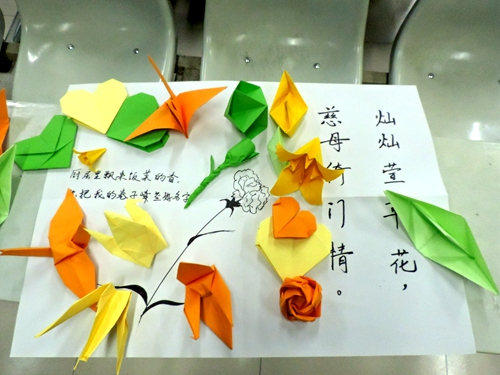 灿灿萱草花，
慈母倚门情。
厨房里飘来饭菜的香
把我的卷子签名字